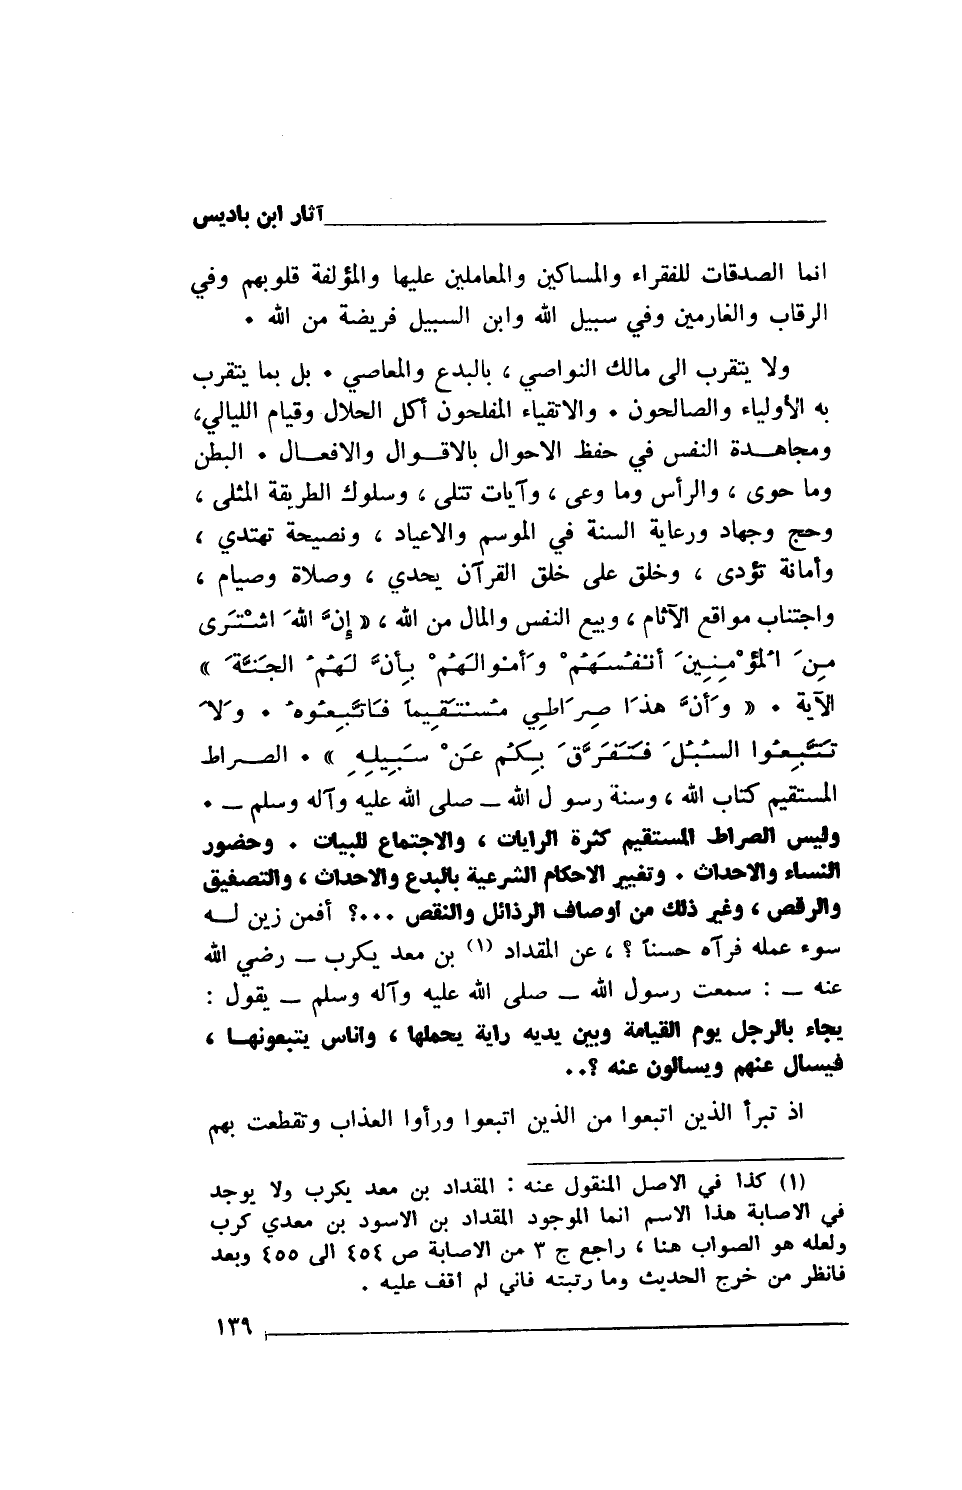 آثار ابن باديس
انما الصدقات للفقراء والمساكين والمعاملين عليها والمؤلفة قلوبهم وفي
الرقاب والغارمين وفي سبيل الله وابن السبيل فريضة من الله .
ولا يتقرب الى مالك النواصي ، بالبدع والمعاصي . بل بما يتقرب
به الأولياء والصالحون . والاتقياء المفلحون أكل الحلال وقيام الليالي،
ومجاهدة النفس في حفظ الاحوال بالاقوال والافعال . البطن
وما حوى ، والرأس وما وعى ، وآيات تتلى ، وسلوك الطريقة المثلى ،
وحج وجهاد ورعاية السنة في الموسم والاعياد ، ونصيحة تهتدي ،
وأمانة تؤدى ، وخلق على خلق القرآن يحدي ، وصلاة وصيام ،
واجتناب مواقع الآثام ، وبيع النفس والمال من الله ، « إِنَّ اللهَ اشْتَرَى
مِنَ الْمُؤْمِنِينَ أَنْفُسَهُمْ وَأَمْوَالَهُمْ بِأَنَّ لَهُمُ الجَنَّةَ »
الآية . « وَأَنَّ هذَا صِرَاطِي مُسْتَقِيماً فَاتَّبِعُوهُ . وَلَا
تَتَّبِعُوا السُّبُلَ فَتَفَرَّقَ بِكُم عَنْ سَبِيلِهِ » . الصراط
المستقيم كتاب الله ، وسنة رسو ل الله ــ صلى الله عليه وآله وسلم ــ .
وليس الصراط المستقيم كثرة الرايات ، والاجتماع للبيات . وحضور
النساء والاحداث . وتغيير الاحكام الشرعية بالبدع والاحداث ، والتصفيق
والرقص ، وغير ذلك من اوصاف الرذائل والنقص ...؟ أفمن زين له
سوء عمله فرآه حسناً ؟ ، عن المقداد (١) بن معد يكرب ــ رضي الله
عنه ــ : سمعت رسول الله ــ صلى الله عليه وآله وسلم ــ يقول :
يجاء بالرجل يوم القيامة وبين يديه راية يحملها ، واناس يتبعونها ،
فيسال عنهم ويسالون عنه ؟..
اذ تبرأ الذين اتبعوا من الذين اتبعوا ورأوا العذاب وتقطعت بهم
(١) كذا في الاصل المنقول عنه : المقداد بن معد يكرب ولا يوجد
في الاصابة هذا الاسم انما الموجود المقداد بن الاسود بن معدي كرب
ولعله هو الصواب هنا ، راجع ج ٣ من الاصابة ص ٤٥٤ الى ٤٥٥ وبعد
فانظر من خرج الحديث وما رتبته فاني لم اقف عليه .
١٣٩